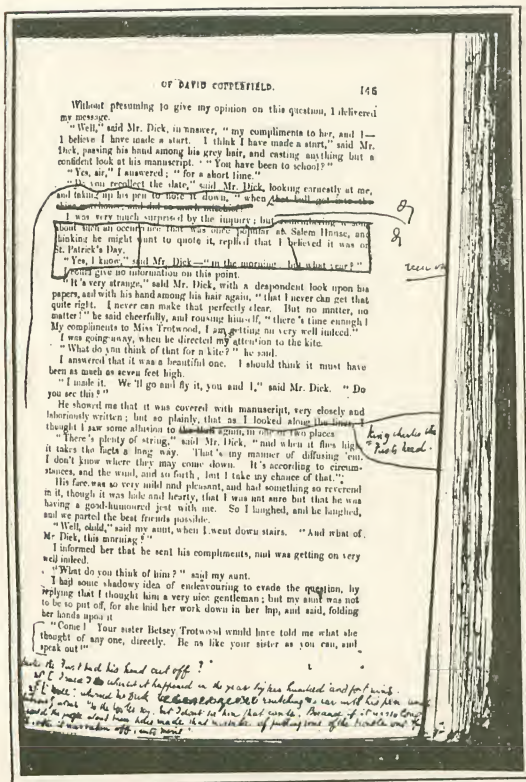 OF DAVID COPPERFIELD. 145
Without presuming to give my opinion on this question, I delivered
my message.
"Well," said Mr. Dick, in answer, "my compliments to her, and I—
I believe I have made a start. I think I have made a start," said Mr.
Dick, passing his hand among his grey hair, and casting anything but a
confident look at his manuscript. "You have been to school?"
"Yes, sir," I answered; "for a short time."
"Do you recollect the date," said Mr. Dick, looking earnestly at me,
and taking up his pen to note it down, "when that bull got into the
I was very much surprised by the inquiry; but remembering a song
about such an occurrence that was once popular at Salem House, and
thinking he might want to quote it, replied that I believed it was on
St. Patrick's Day.
"Yes, I know," said Mr. Dick—"in the morning; but what year?"
I could give no information on this point.
"It's very strange," said Mr. Dick, with a despondent look upon his
papers, and with his hand among his hair again, "that I never can get that
quite right. I never can make that perfectly clear. But no matter, no
matter!" he said cheerfully, and rousing himself, "there's time enough!
My compliments to Miss Trotwood, I am getting on very well indeed."
I was going away, when he directed my attention to the kite.
"What do you think of that for a kite?" he said.
I answered that it was a beautiful one. I should think it must have
been as much as seven feet high.
"I made it. We'll go and fly it, you and I," said Mr. Dick. "Do
you see this?"
He showed me that it was covered with manuscript, very closely and
laboriously written; but so plainly, that as I looked along the lines, I
thought I saw some allusion to the Bull again, in one or two places
King Charles the
First's head.
"There's plenty of string," said Mr. Dick, "and when it flies high,
it takes the facts a long way. That's my manner of diffusing 'em.
I don't know where they may come down. It's according to circum-
stances, and the wind, and so forth, but I take my chance of that."
His face was so very mild and pleasant, and had something so reverend
in it, though it was hale and hearty, that I was not sure but that he was
having a good-humoured jest with me. So I laughed, and he laughed,
and we parted the best friends possible.
"Well, child," said my aunt, when I went down stairs. "And what of
Mr. Dick, this morning?"
I informed her that he sent his compliments, and was getting on very
well indeed.
"What do you think of him?" said my aunt.
I had some shadowy idea of endeavouring to evade the question, by
replying that I thought him a very nice gentleman; but my aunt was not
to be so put off, for she laid her work down in her lap, and said, folding
her hands upon it
"Come! Your sister Betsey Trotwood would have told me what she
thought of any one, directly. Be as like your sister as you can, and
speak out!"
the First had his head cut off?"
I said I it happened in the year sixteen hundred and forty nine.